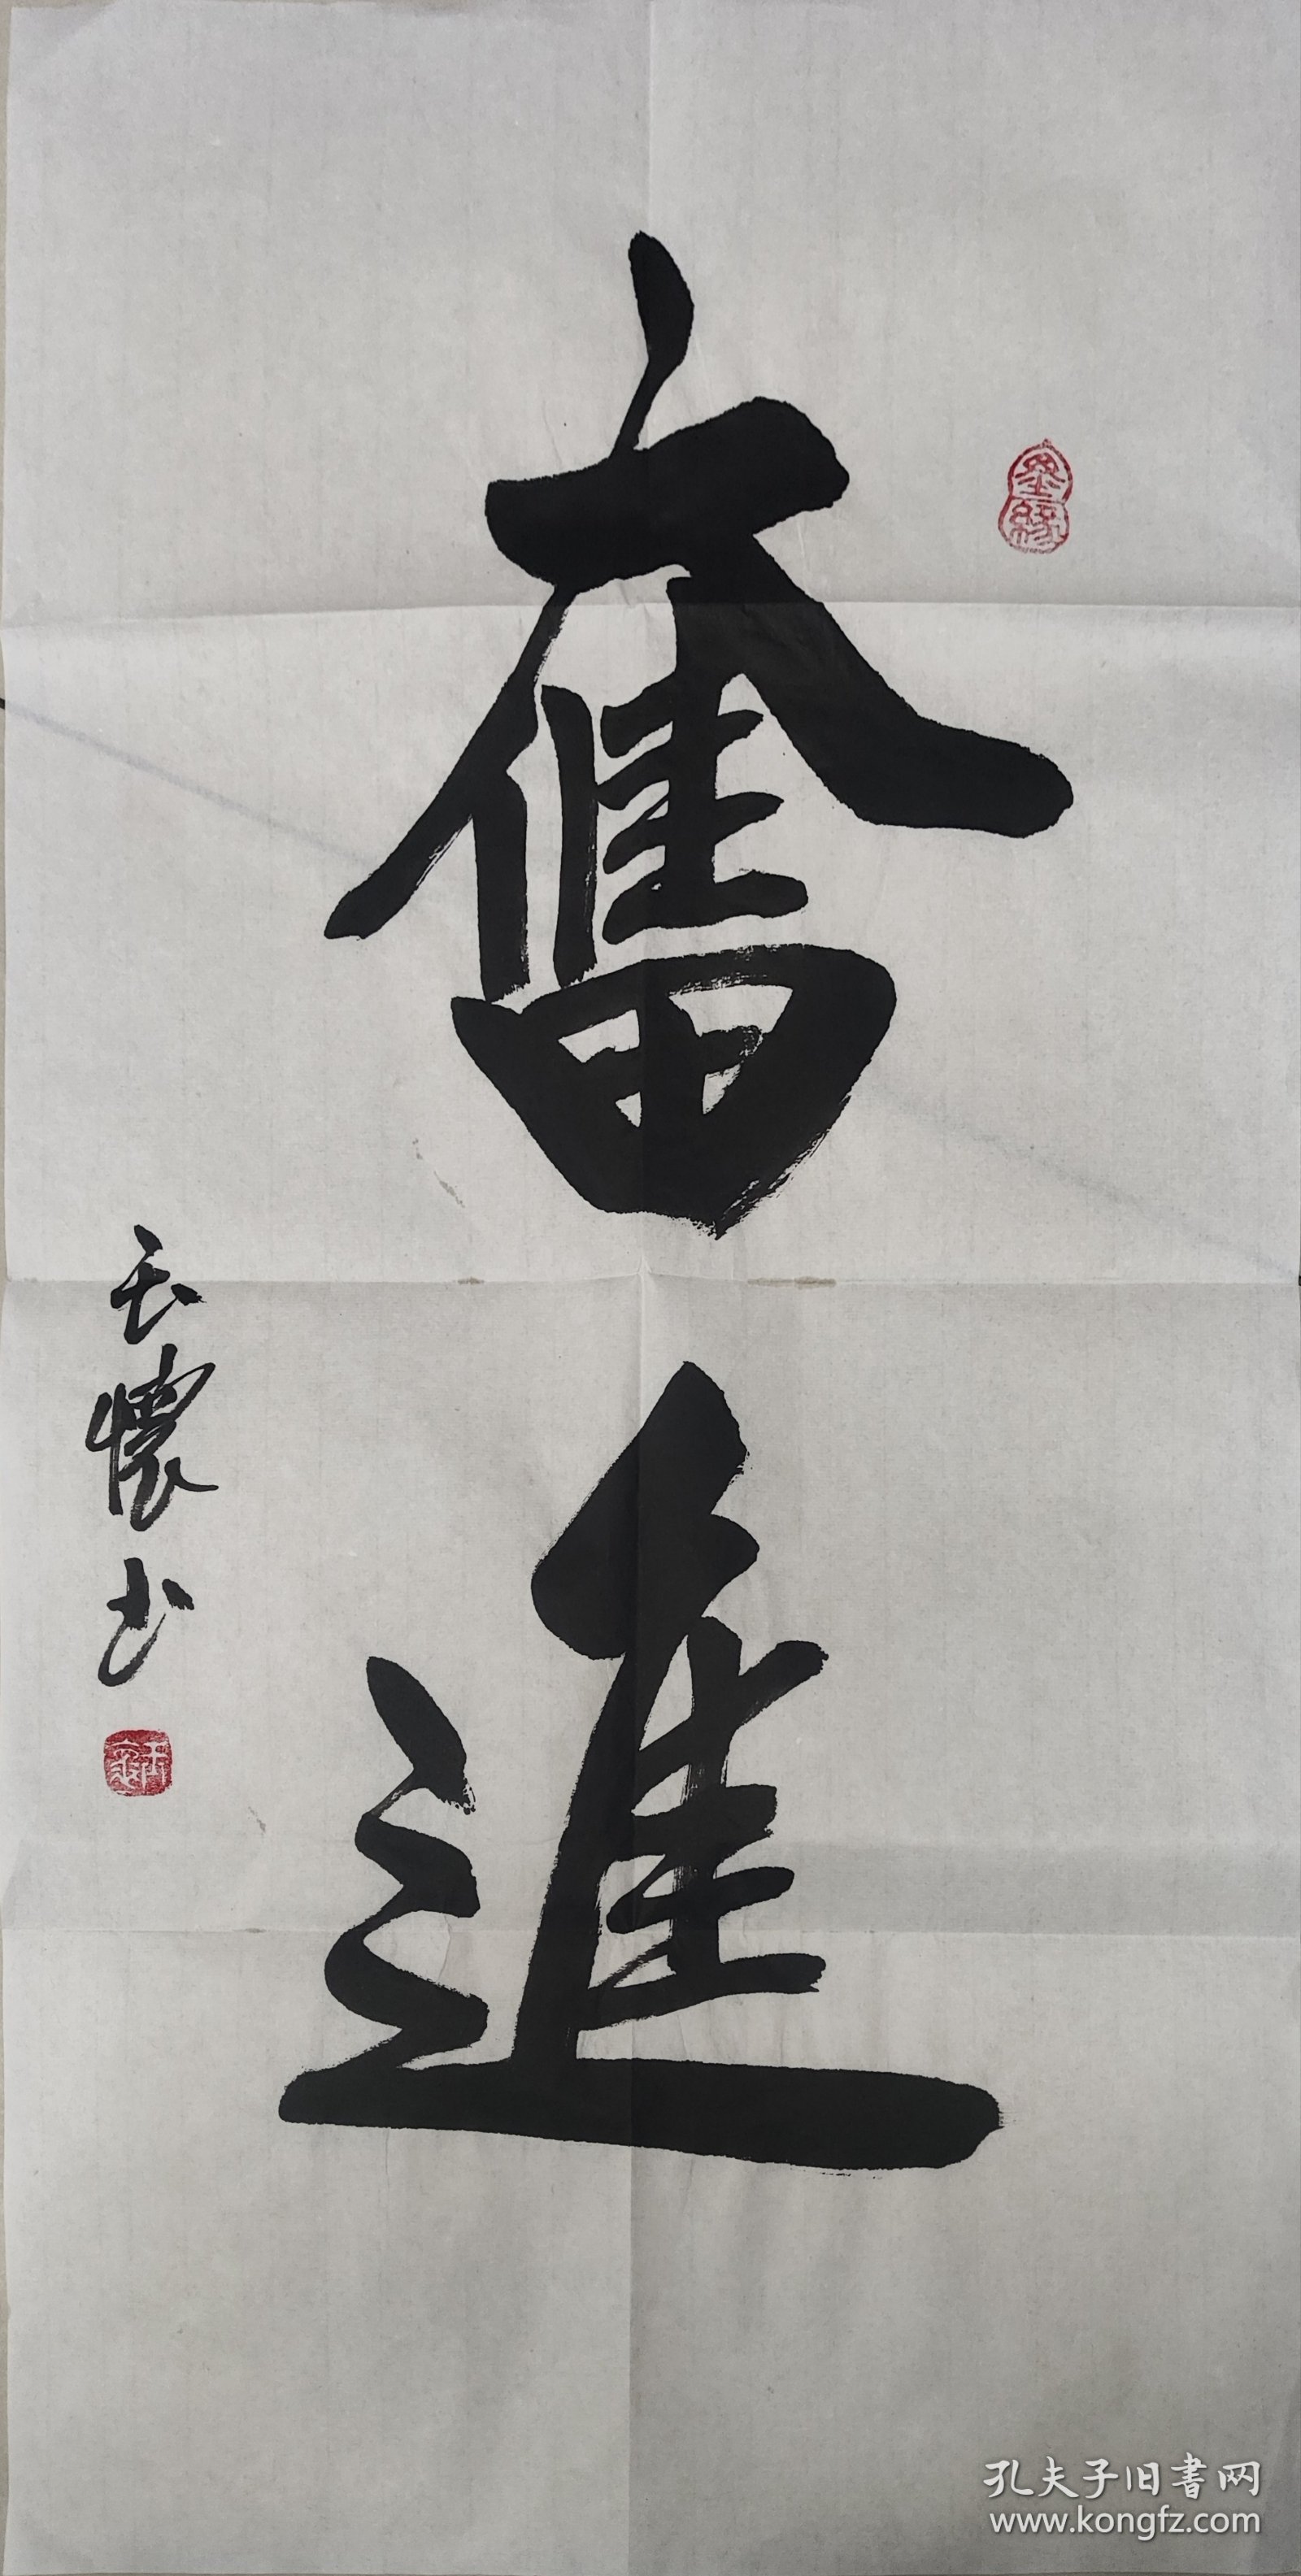 奮進
懷书
墨緣
孔夫子旧書网
www.kongfz.com